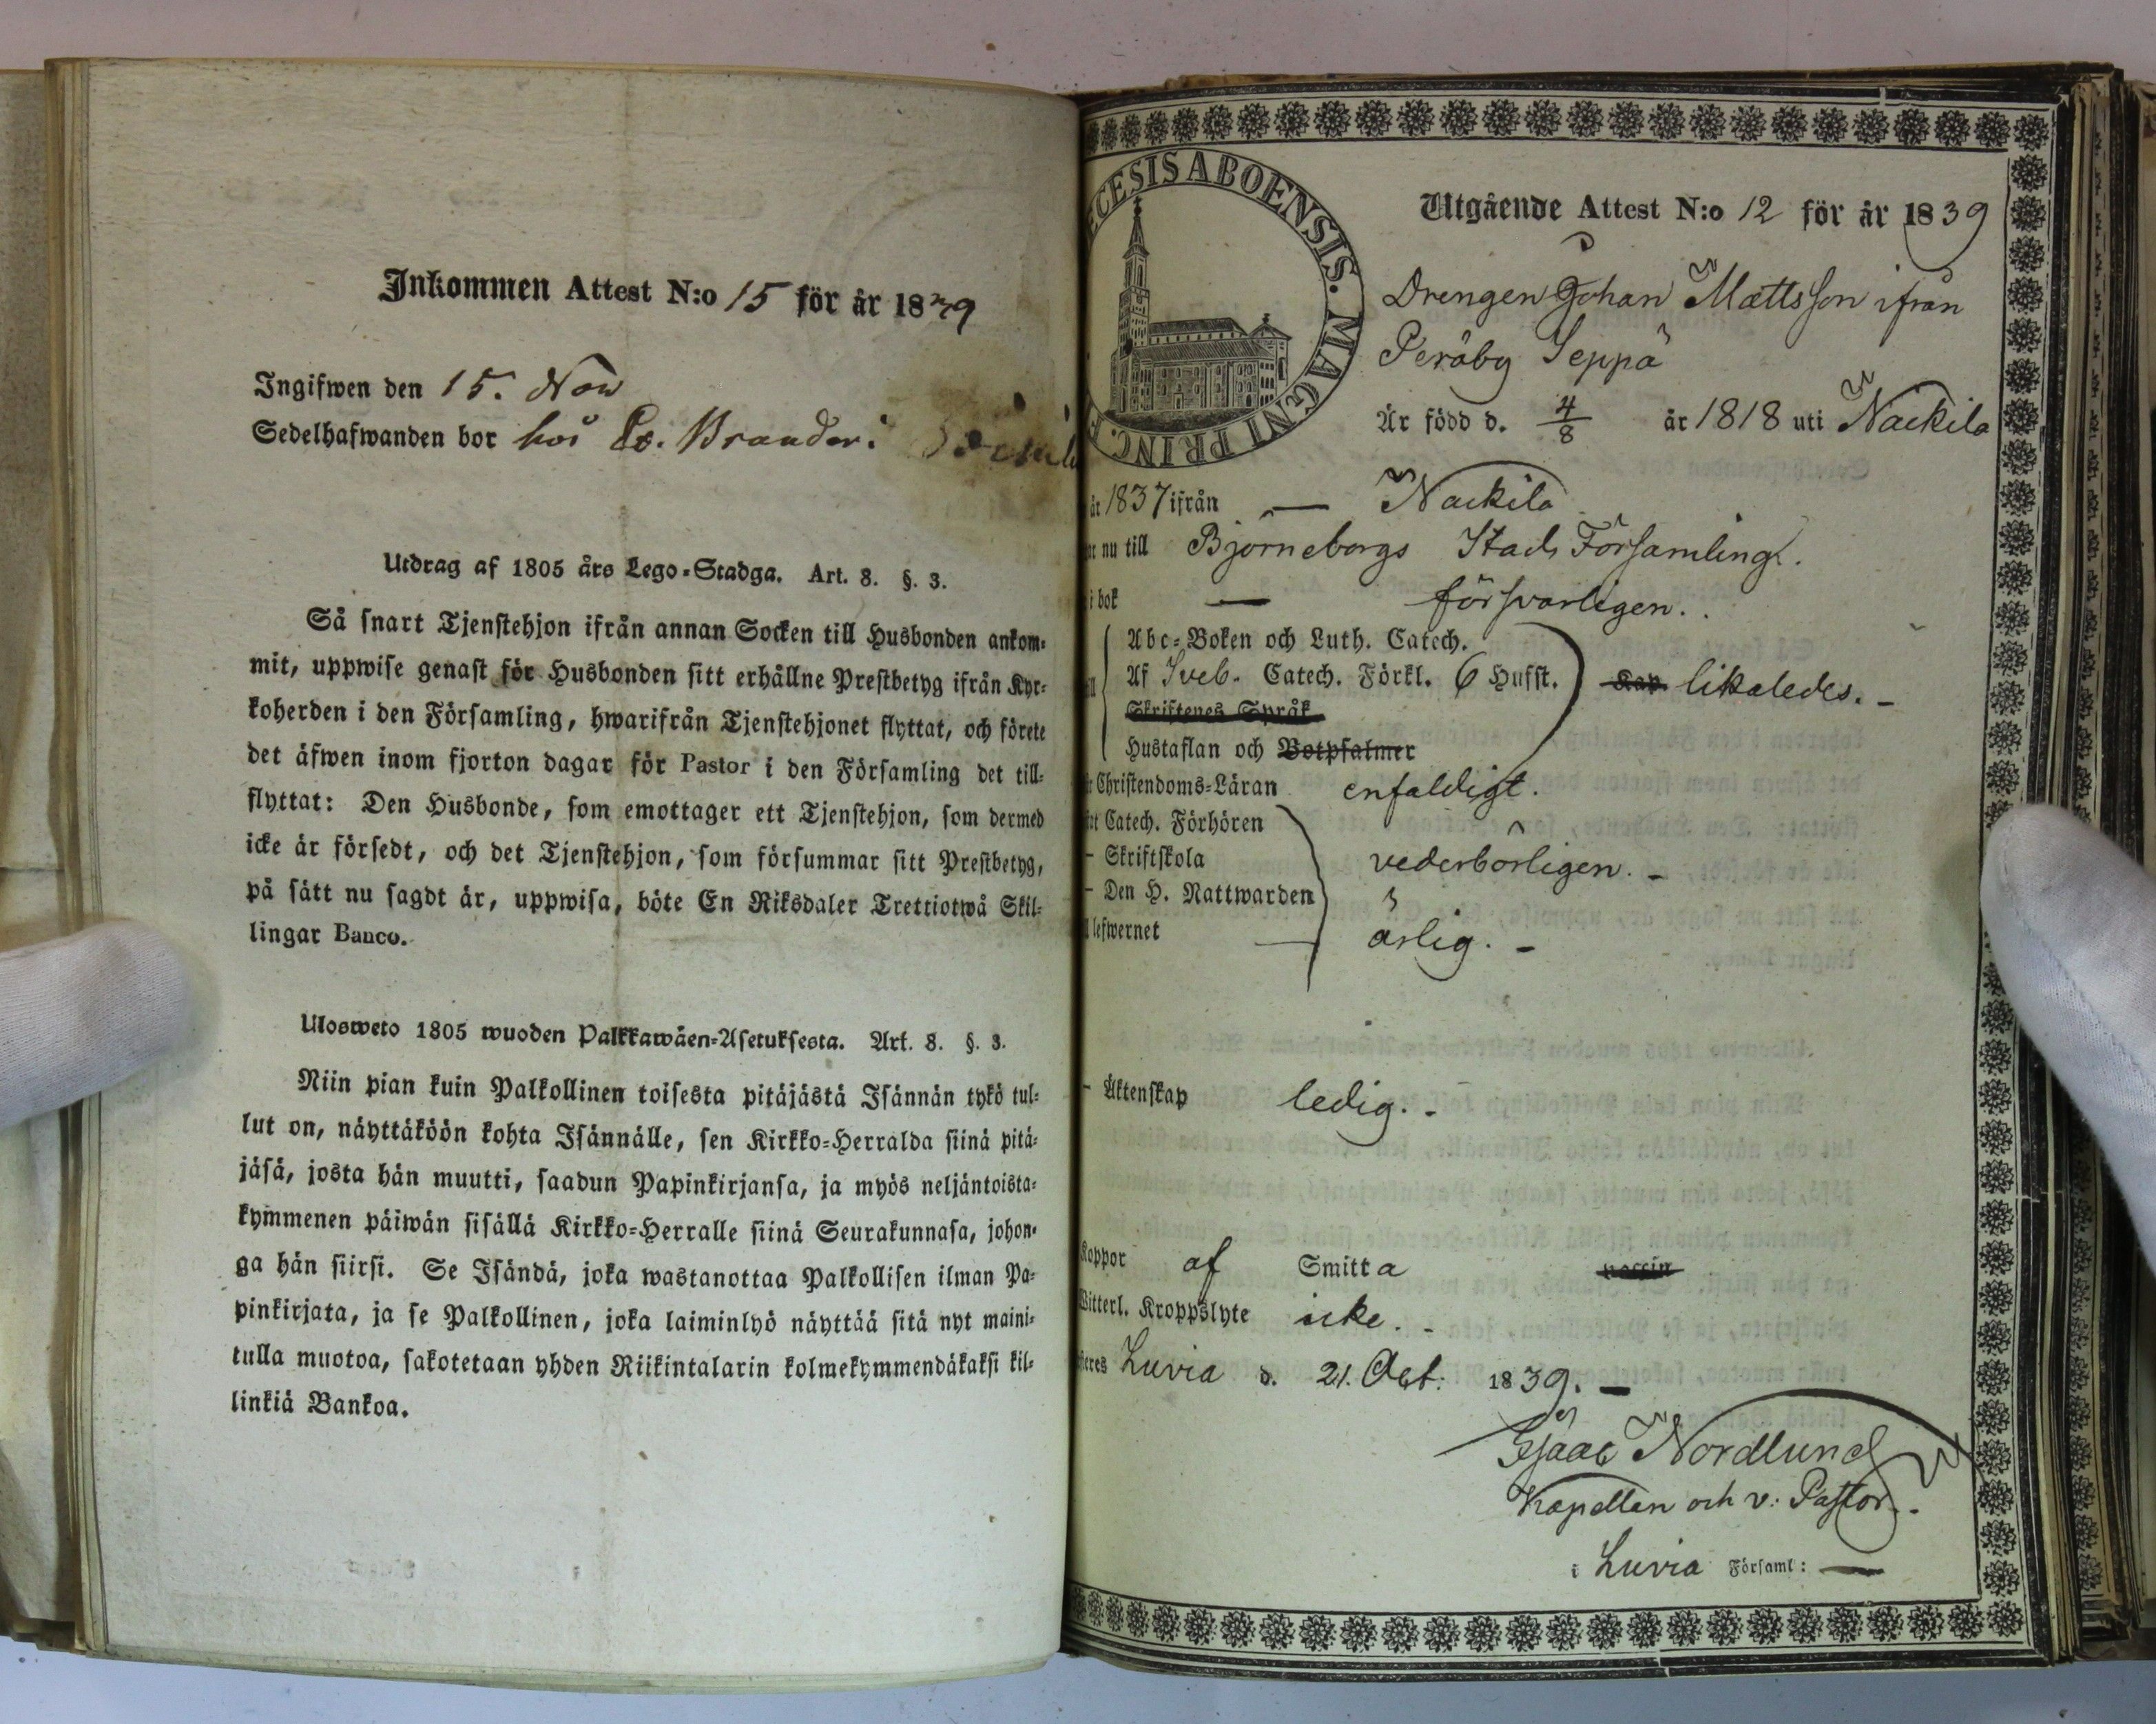 Inkommen Attest N:o 15 för år 1839
Ingifwen den 15. Nov
Sedelhafwanden bor hos Brander.
Utdrag af 1805 års Lego-Stadga. Art. 8. §. 3.
Så snart Tjenstehjon ifrån annan Socken till Husbonden ankom-
mit, uppwise genast för Husbonden sitt erhållne Prestbetyg ifrån Kyr-
koherden i den Församling, hwarifrån Tjenstehjonet flyttat, och förete
det äfwen inom fjorton dagar för Pastor i den Församling det till-
flyttat: Den Husbonde, som emottager ett Tjenstehjon, som dermed
icke är försedt, och det Tjenstehjon, som försummar sitt Prestbetyg,
på sätt nu sagdt är, uppwisa, böte En Riksdaler Trettiotwå Skil-
lingar Banco.
Ulosweto 1805 wuoden Palkkawäen-Asetuksesta. Art. 8. §. 3.
Niin pian kuin Palkollinen toisesta pitäjästä Isännän tykö tul-
lut on, näyttäköön kohta Isännälle, sen Kirkko-Herralda siinä pitä-
jäsä, josta hän muutti, saadun Papinkirjansa, ja myös neljäntoista-
kymmenen päiwän sisällä Kirkko-Herralle siinä Seurakunnasa, johon-
ga hän siirsi. Se Isändä, joka wastanottaa Palkollisen ilman Pa-
pinkirjata, ja se Palkollinen, joka laiminlyö näyttää sitä nyt maini-
tulla muotoa, sakotetaan yhden Riikintalarin kolmekymmendäkaksi kil-
linkiä Bankoa.
CESIS ABOENSIS. MAGNI PRINC. F
Utgående Attest N:o 12 för år 1839
Drengen Johan Mattsson ifrån
Peräby Seppä
Är född d. 4/8 år 1818 uti Nackila
år 1837 ifrån — Nackila
nu till Björneborgs Stads Församling.
i bok — försvarligen.
Abc-Boken och Luth. Catech.
Af Sveb. Catech. Förkl. 6 Hufst. likaledes. -
Skriftenes Språk
Hustaflan och Botpsalmer
Christendoms-Läran enfaldigt.
Catech. Förhören
- Skriftskola vederbörligen. -
- Den H. Nattwarden
lefwernet — ärlig. -
- Äktenskap ledig. -
Koppor af Smitta
Witterl. Kroppslyte icke. -
Luvia d. 21. Oct: 1839. -
Isaac Nordlund
Kapellan och v: Pastor.
i Luvia Församl: —